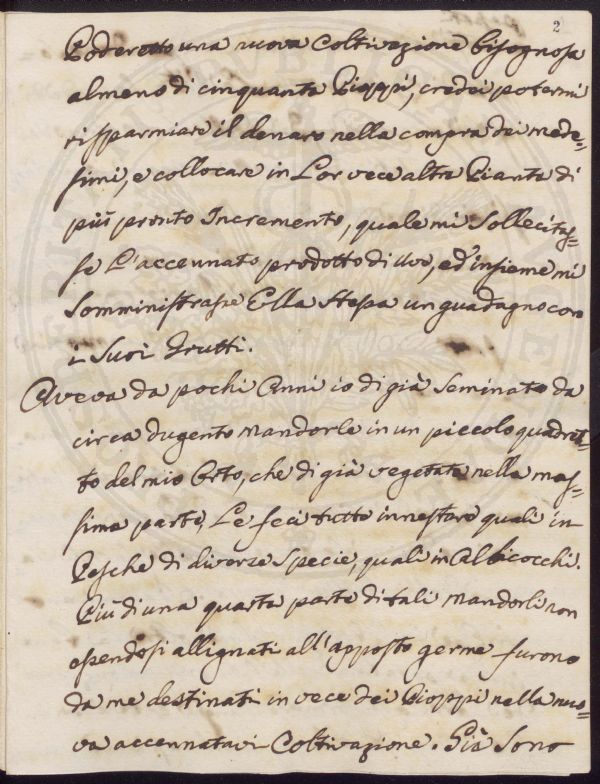 2
Poderetto una nuova Coltivazione bisognosa
almeno di cinquanta Pioppi, credei potermi
risparmiare il denaro nella compra dei mede-
simi, e collocare in Lor vece altre Piante di
più pronto Incremento, quale mi Sollecitas-
se L'accennato prodotto di Uve, ed insieme mi
Somministrasse Ella stessa un guadagno con
i Suoi frutti.
Aveva da pochi Anni io di già Seminato da
circa dugento Mandorle in un piccolo quadret-
to del mio Orto, che di già vegetate nella mas-
sima parte, Le feci tutte innestare quali in
Pesche di diverse Specie, quali in Albicocchi.
Più di una quarta parte di tali Mandorli non
essendosi allignati all'apposto germe furono
da me destinati in vece dei Pioppi nella nuo-
va accennatavi Coltivazione. Già Sono